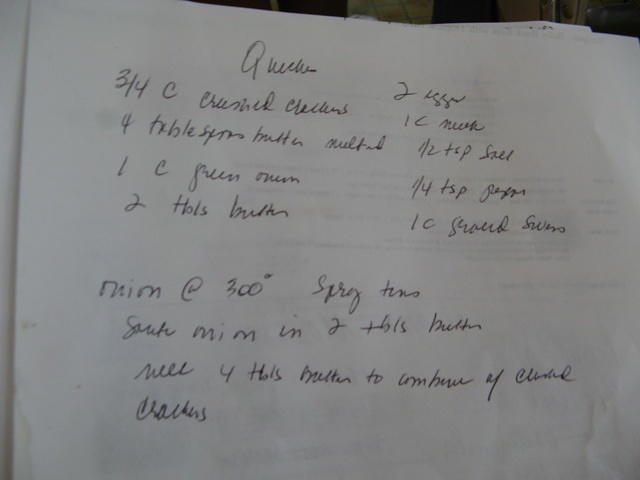 Quiche
3/4 C crushed crackers
4 tablespoons butter melted
1 C green onion
2 tbls butter
2 eggs
1 C milk
1/2 tsp salt
1/4 tsp pepper
1 C grated Swiss
onion @ 300° Spray tins
Saute onion in 2 tbls butter
melt 4 tbls butter to combine w/ crushed
crackers